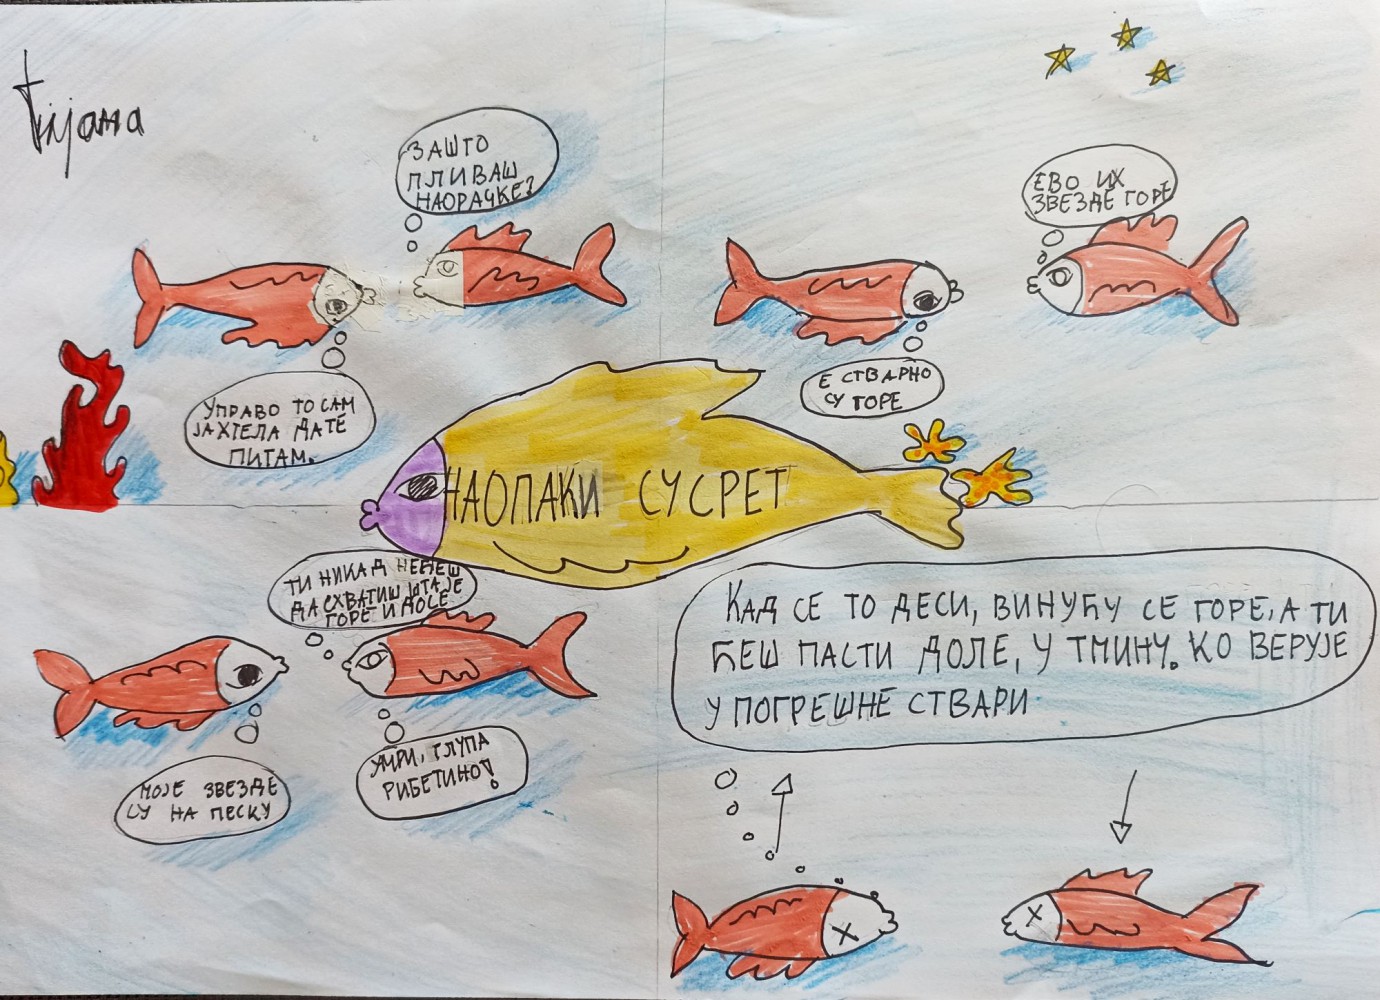 Тијана
ЗАШТО
ПЛИВАШ
НАОРАЧКЕ?
УПРАВО ТО САМ
ЈА ХТЕЛА ДА ТЕ
ПИТАМ.
ЕВО ИХ
ЗВЕЗДЕ ГОРЕ
Е СТВАРНО
СУ ГОРЕ
НАОПАКИ СУСРЕТ
ТИ НИКАД НЕЋЕШ
ДА СХВАТИШ ШТА ЈЕ
ГОРЕ И ДОЛЕ
МОЈЕ ЗВЕЗДЕ
СУ НА ПЕСКУ
УМРИ, ГЛУПА
РИБЕТИНО!
КАД СЕ ТО ДЕСИ, ВИНУЋУ СЕ ГОРЕ, А ТИ
ЋЕШ ПАСТИ ДОЛЕ, У ТМИНУ. КО ВЕРУЈЕ
У ПОГРЕШНЕ СТВАРИ